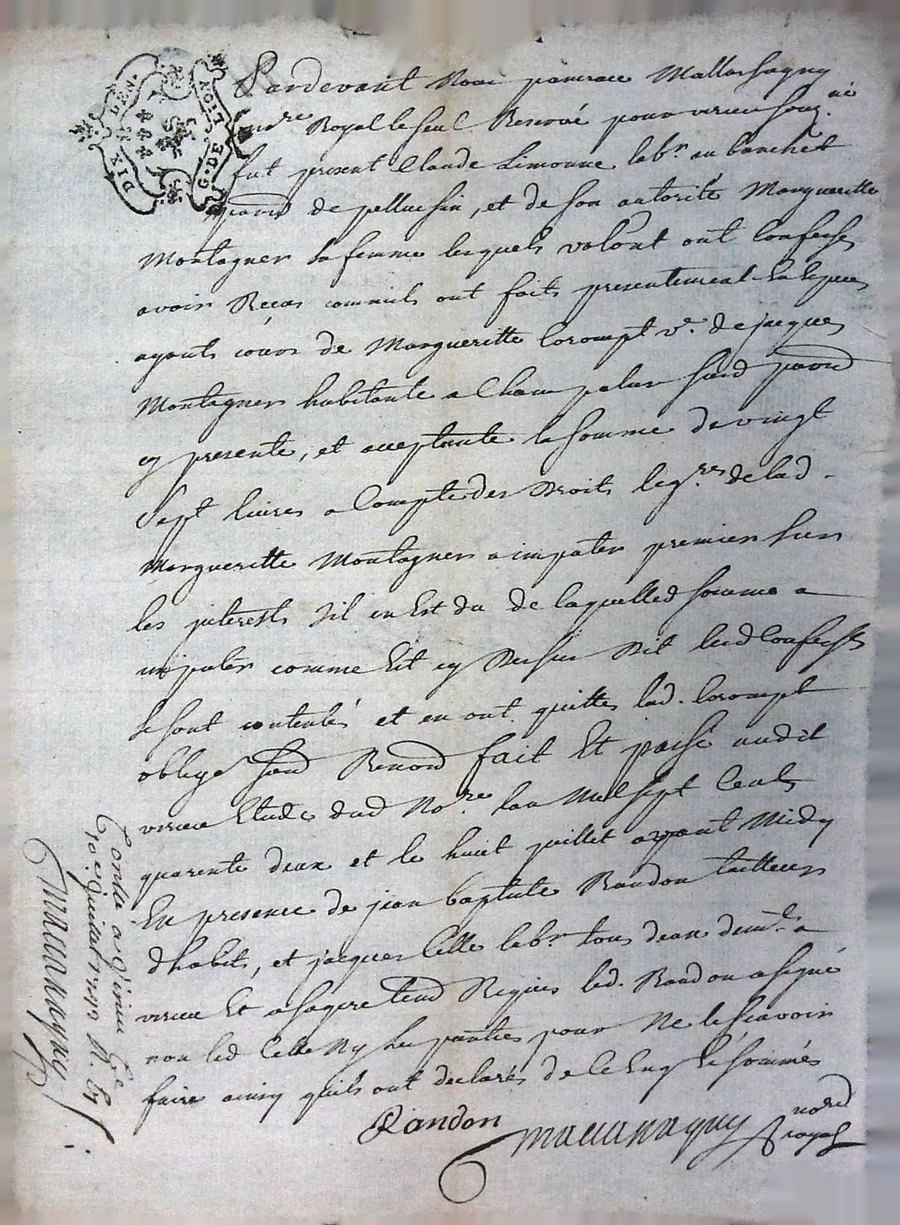 DIX DEN. G. DE LION
Pardevant Nous pancrace Mallassagny
No.re Royal le seul Reservé pour virieu souz.né
fut present Claude Limonne lab.r au banchet
parr.e de pellussin, et de son autorité Margueritte
Montagner sa femme lesquels volont.t ont confessé
avoir Receu comme ils ont faits presentement en especes
ayants cours de Margueritte Corompt v.e de jacques
Montagner habitante a Champailler susd parr.e
cy presente, et acceptante la somme de vingt
sept livres a Compte des Droits leg.res de lad.
Margueritte Montagner a imputer premier sur
les interests sil en Est du de laquelled somme a
imputer comme Est cy Dessus Dit lesd Confess.
se sont contentés et en ont quittes lad. Corompt
oblige soud Renond fait Et passé audit
virieu Etude dud No.re lan Mil sept Cents
quarente deux et le huit juillet avant Midy
En presence de jean baptiste Randon tailleur
dhabits, et jacques Celle lab.r tous deux dem.ts a
virieu Et a Requis led. Randon a signé
non led Celle Ny les parties pour Ne le scavoir
faire ainsy quils ont declarés de ce Enq. Et sommés
Randon
Mallassagny
no.re royal
Contlé a virieu le
Mallassagny